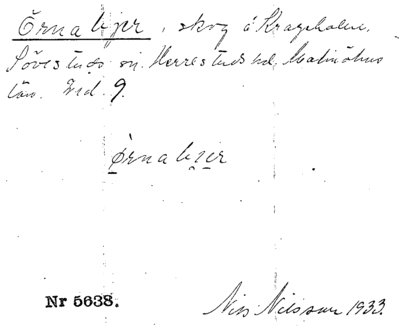 Örnabjer, skog å Krageholm,
Sövestads sn. Herrestads hd. Malmöhus
län. Upl. 9.
ørnabjer
Nr 5638.
Nils Nilsson 1933.